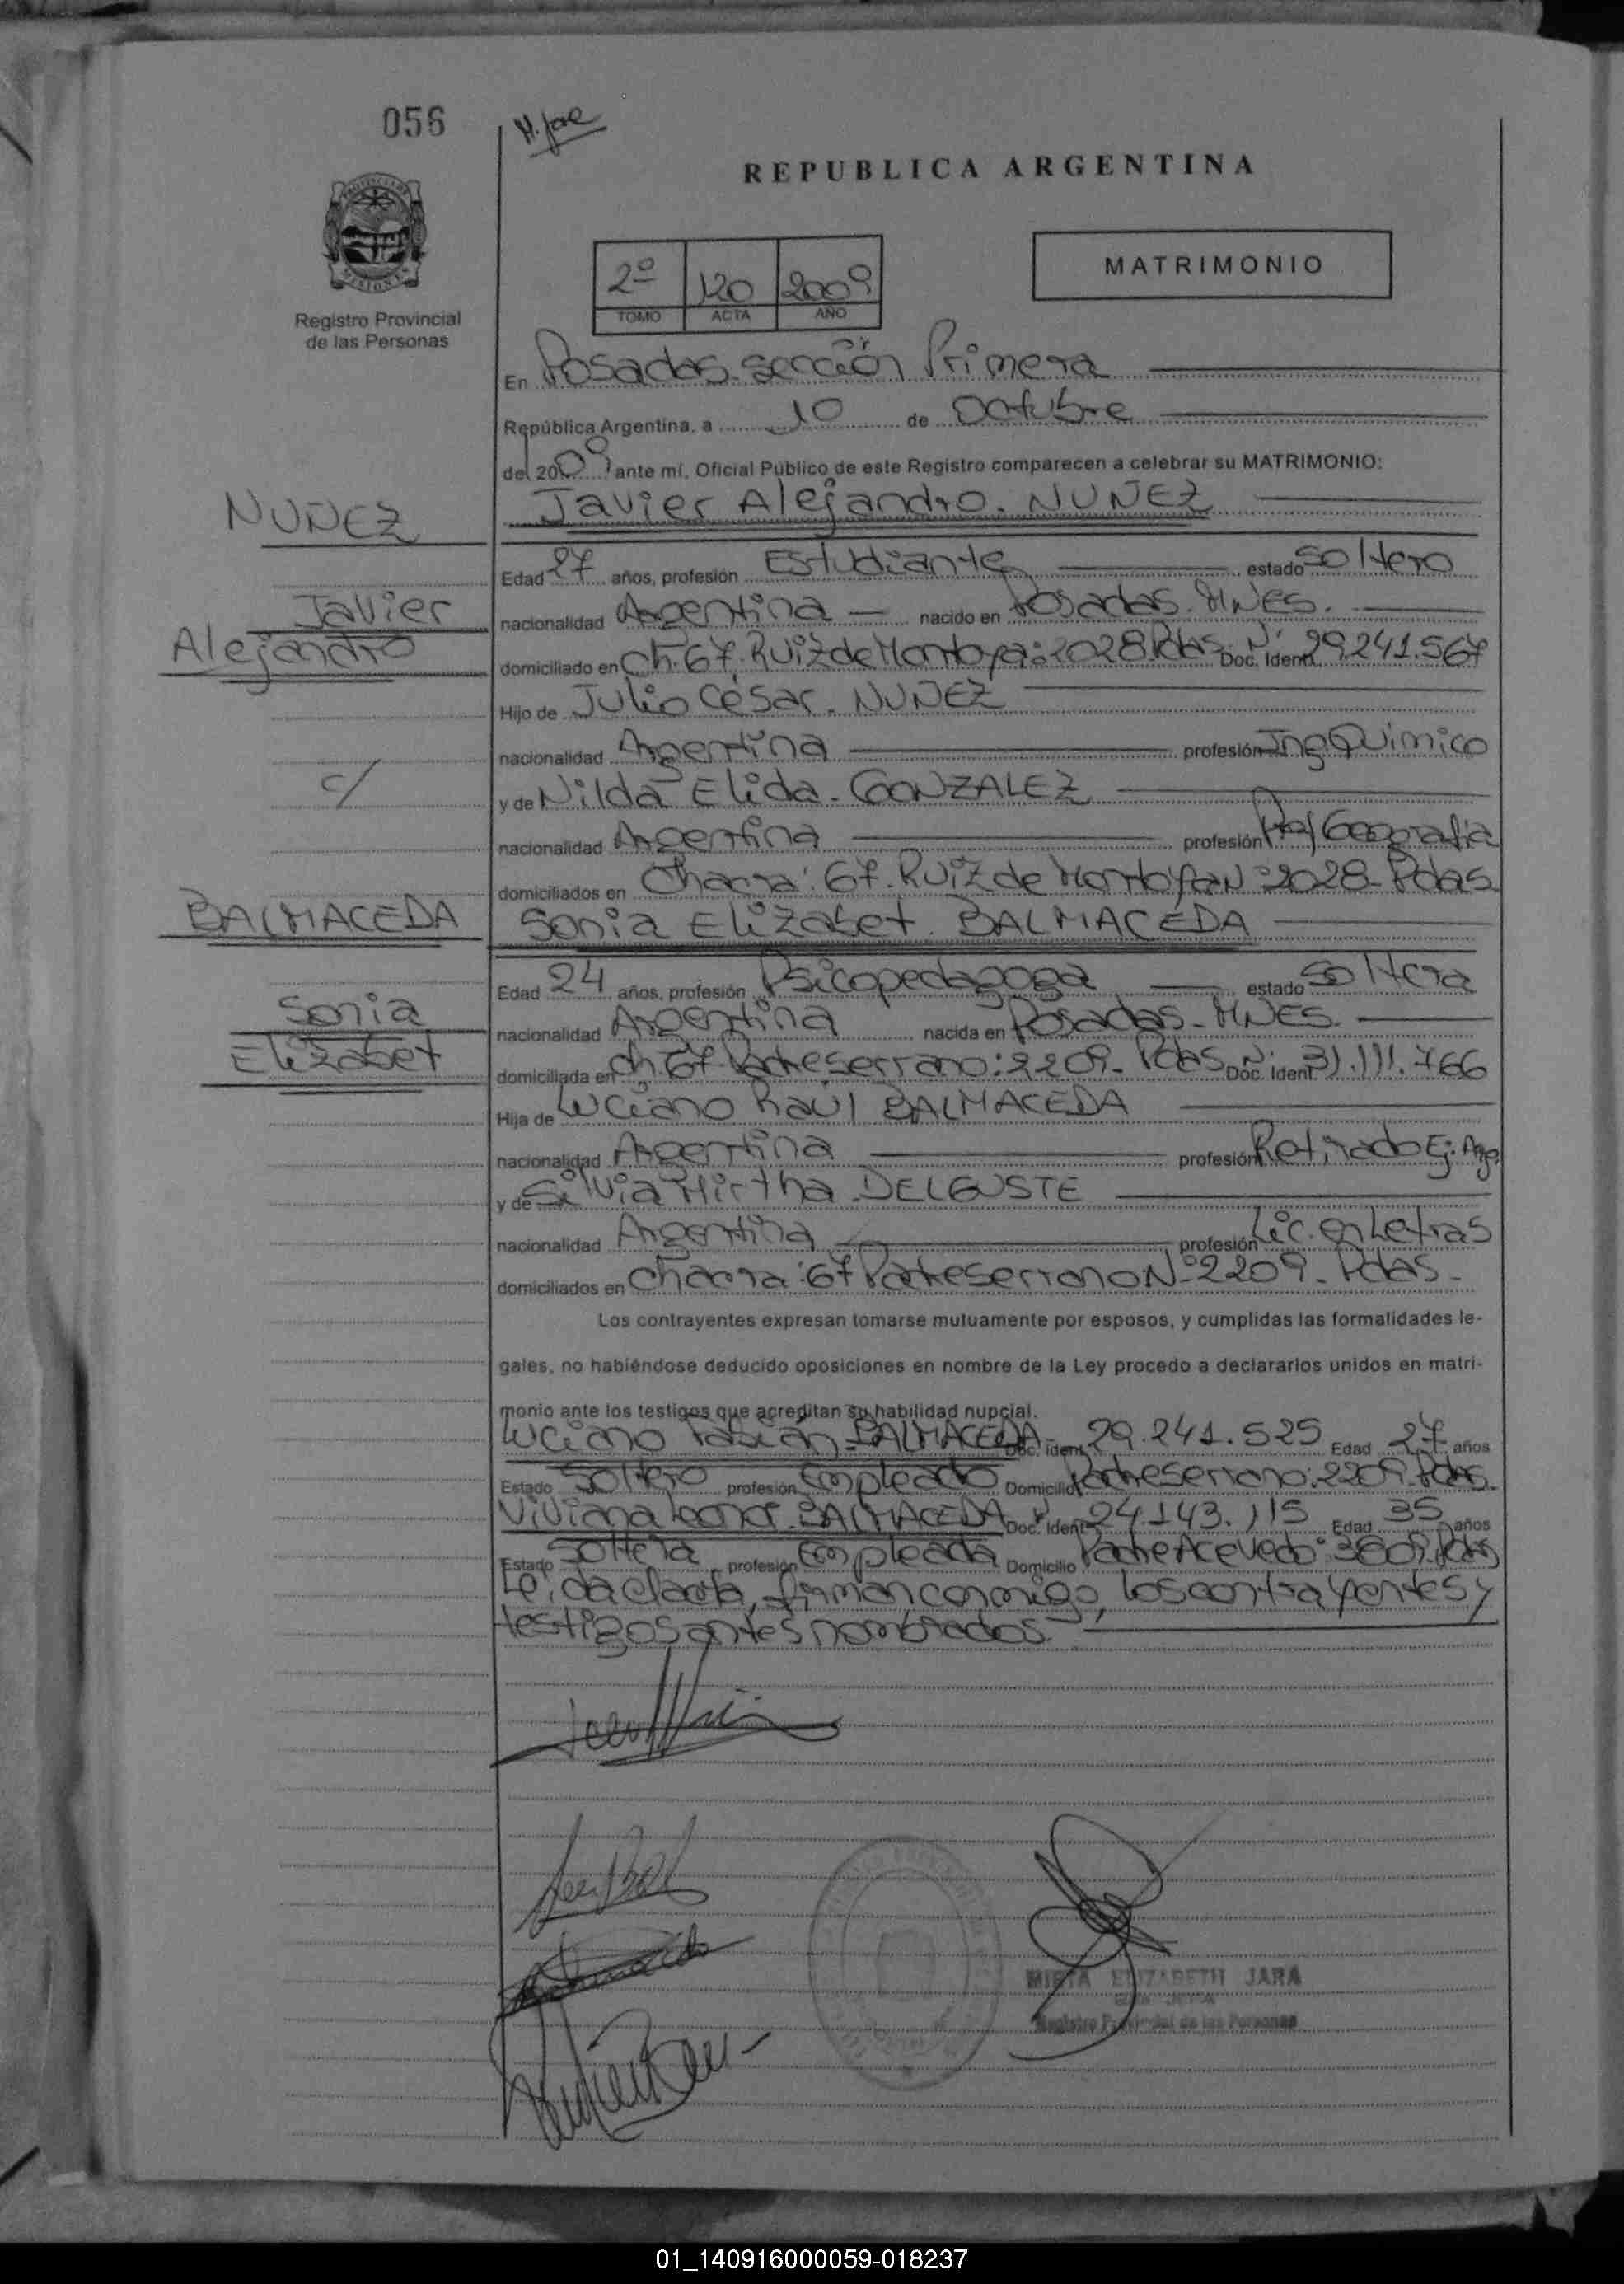 056
H. Jae
REPUBLICA ARGENTINA
MATRIMONIO
2º 120 2009
TOMO ACTA AÑO
Registro Provincial
de las Personas
En Posadas. sección Primera
República Argentina, a 10 de Octubre
del 2009 ante mí, Oficial Público de este Registro comparecen a celebrar su MATRIMONIO:
NUÑEZ
Javier Alejandro. NUÑEZ
Edad 27 años, profesión Estudiante estado soltero
Javier
nacionalidad Argentina nacido en Posadas. MNES.
Alejandro
domiciliado en Ch. 67. Ruiz de Montoya: 2028. Pdas. Doc. Ident. Nº 29.241.567
Hijo de Julio César. NUÑEZ
nacionalidad Argentina profesión Ing Quimico
c/
y de Nilda Elida. GONZALEZ
nacionalidad Argentina profesión Prof Geografia
domiciliados en Chacra: 67. Ruiz de Montoya Nº 2028. Pdas.
BALMACEDA
Sonia Elizabet. BALMACEDA
Edad 24 años, profesión Psicopedagoga estado soltera
Sonia
nacionalidad Argentina nacida en Posadas. MNES.
Elizabet
domiciliada en Ch. 67. Padre Serrano: 2209. Pdas. Doc. Ident. Nº 31.111.766
Hija de Luciano Raúl BALMACEDA
nacionalidad Argentina profesión Retirado Ej. Arg.
y de Silvia Mirtha. DELGUSTE
nacionalidad Argentina profesión Lic. en Letras
domiciliados en Chacra: 67 Padre Serrano Nº 2209. Pdas.
Los contrayentes expresan tomarse mutuamente por esposos, y cumplidas las formalidades le-
gales, no habiéndose deducido oposiciones en nombre de la Ley procedo a declararlos unidos en matri-
monio ante los testigos que acreditan su habilidad nupcial.
Luciano Fabián. BALMACEDA Doc. Ident. 29.241.525 Edad 27 años
Estado Soltero profesión Empleado Domicilio Padre Serrano: 2209. Pdas.
Viviana Leonor. BALMACEDA Doc. Ident. Nº 24.143.115 Edad 35 años
Estado Soltera profesión Empleada Domicilio Padre Acevedo: 3609. Pdas
Leída el acta, firman conmigo, los contrayentes y
testigos antes nombrados.
MIRTA ELIZABETH JARA
Registro Provincial de las Personas
01_140916000059-018237